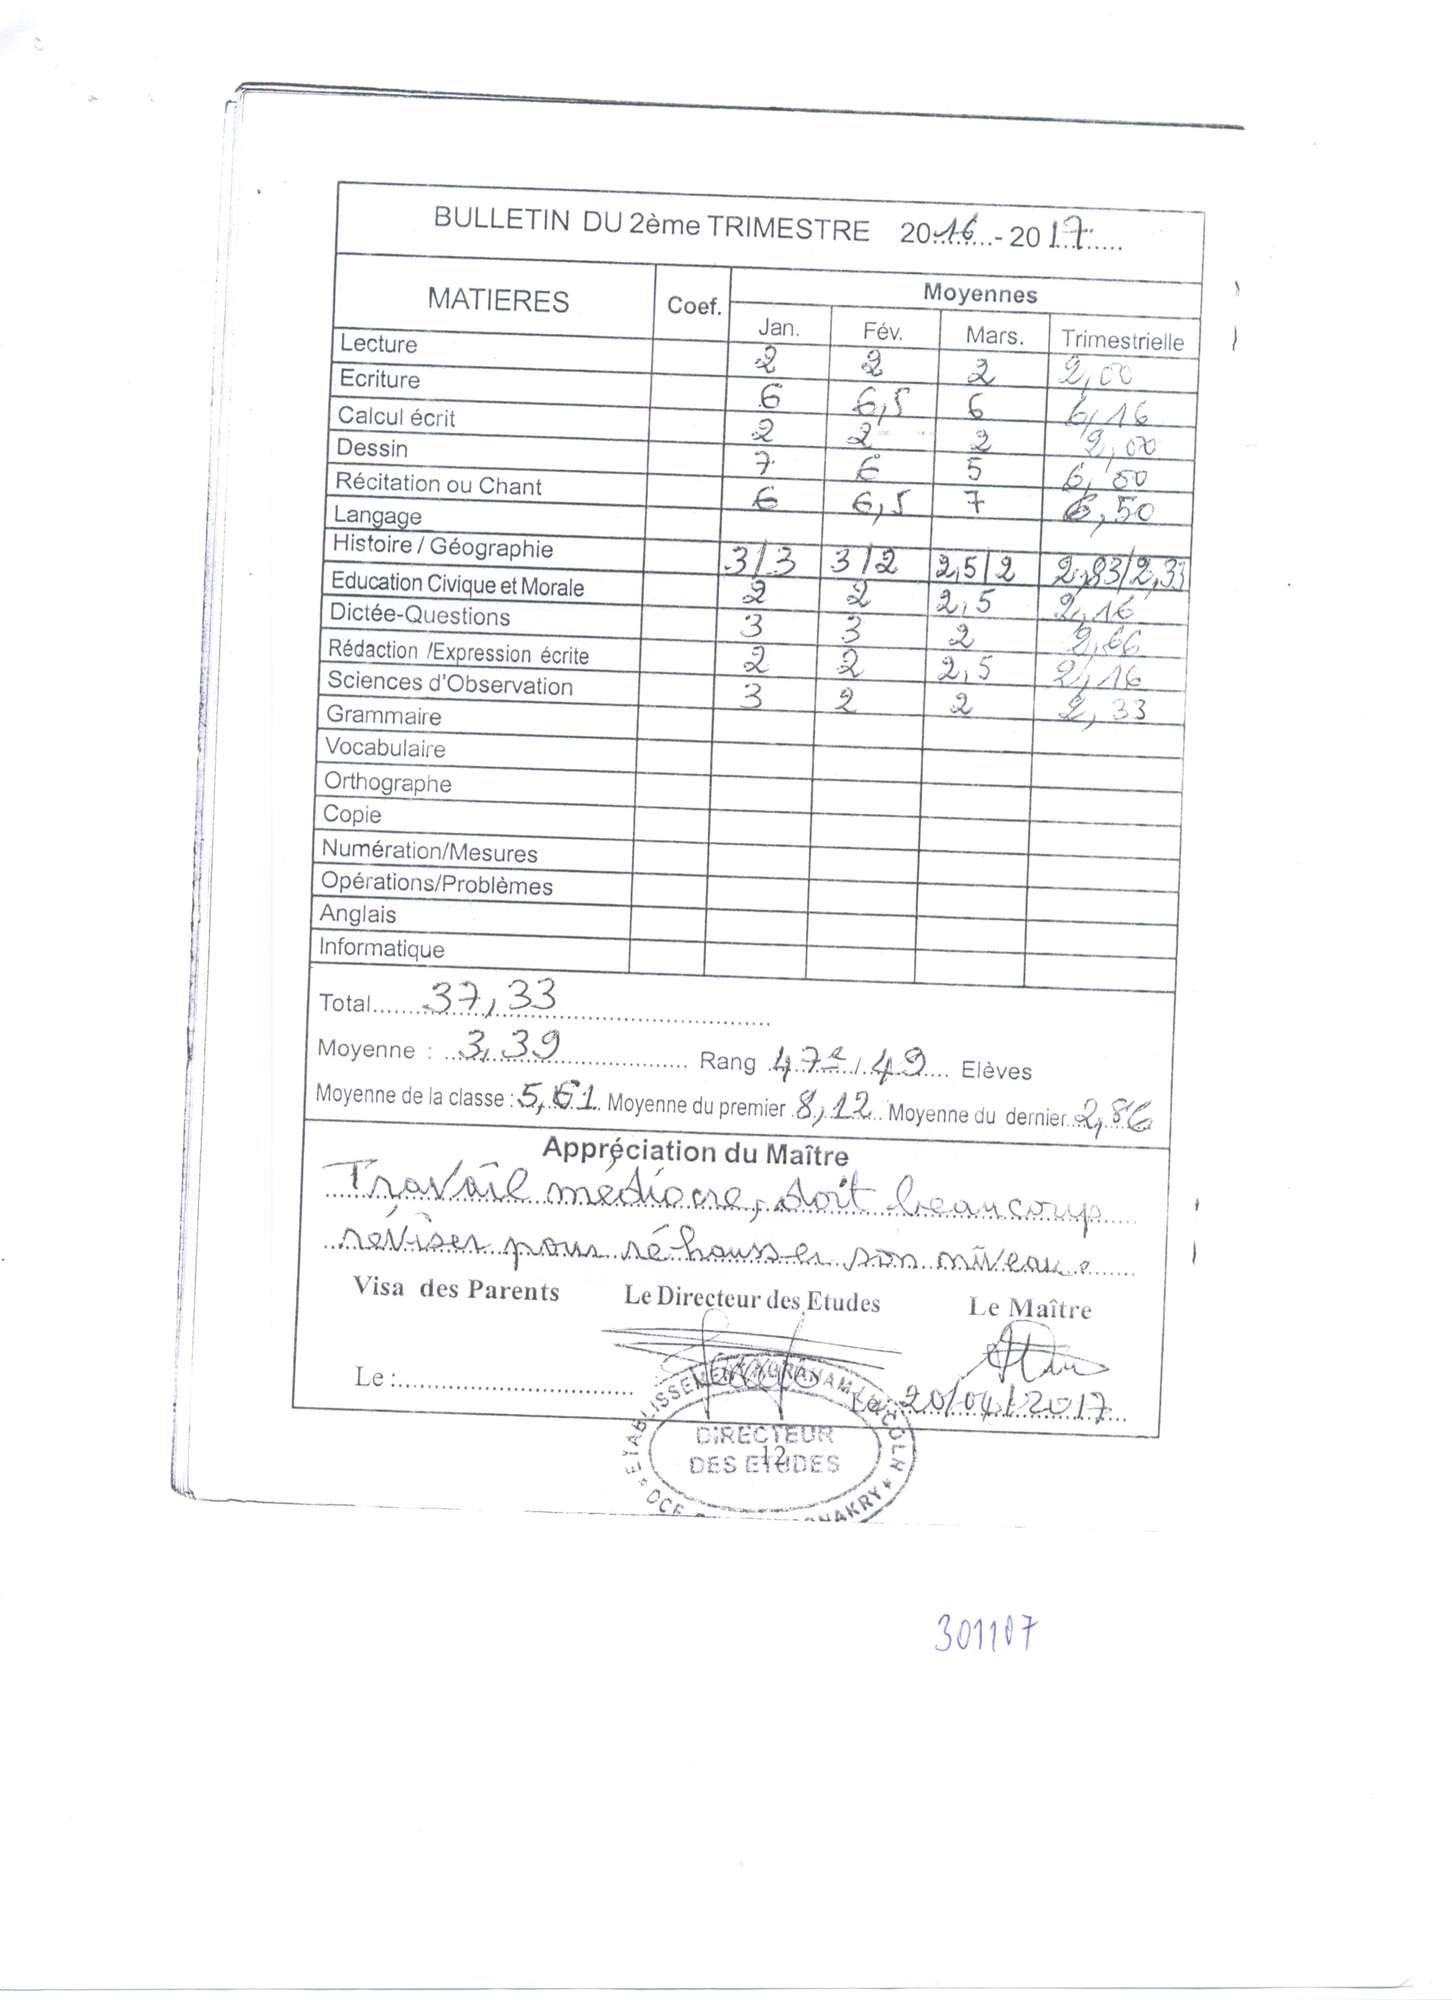 BULLETIN DU 2ème TRIMESTRE 2016 - 2017
MATIERES Coef. Moyennes
Jan. Fév. Mars. Trimestrielle
Lecture 2 2 2 2,00
Ecriture 6 6,5 6 6,16
Calcul écrit 2 2 2 2,00
Dessin 7 6 5 6,00
Récitation ou Chant 6 6,5 7 6,50
Langage
Histoire / Géographie 3/3 3/2 2,5/2 2,83/2,33
Education Civique et Morale 2 2 2,5 2,16
Dictée-Questions 3 3 2 2,66
Rédaction /Expression écrite 2 2 2,5 2,16
Sciences d'Observation 3 2 2 2,33
Grammaire
Vocabulaire
Orthographe
Copie
Numération/Mesures
Opérations/Problèmes
Anglais
Informatique
Total 37,33
Moyenne : 3,39 Rang 47e / 49 Elèves
Moyenne de la classe : 5,61 Moyenne du premier 8,12 Moyenne du dernier 2,86
Appréciation du Maître
Travail médiocre, doit beaucoup
réviser pour réhausser son niveau.
Visa des Parents Le Directeur des Etudes Le Maître
Le : Le 20/04/2017
ETABLISSEMENT ABRAHAM LINCOLN
DIRECTEUR
DES ETUDES
12
301107